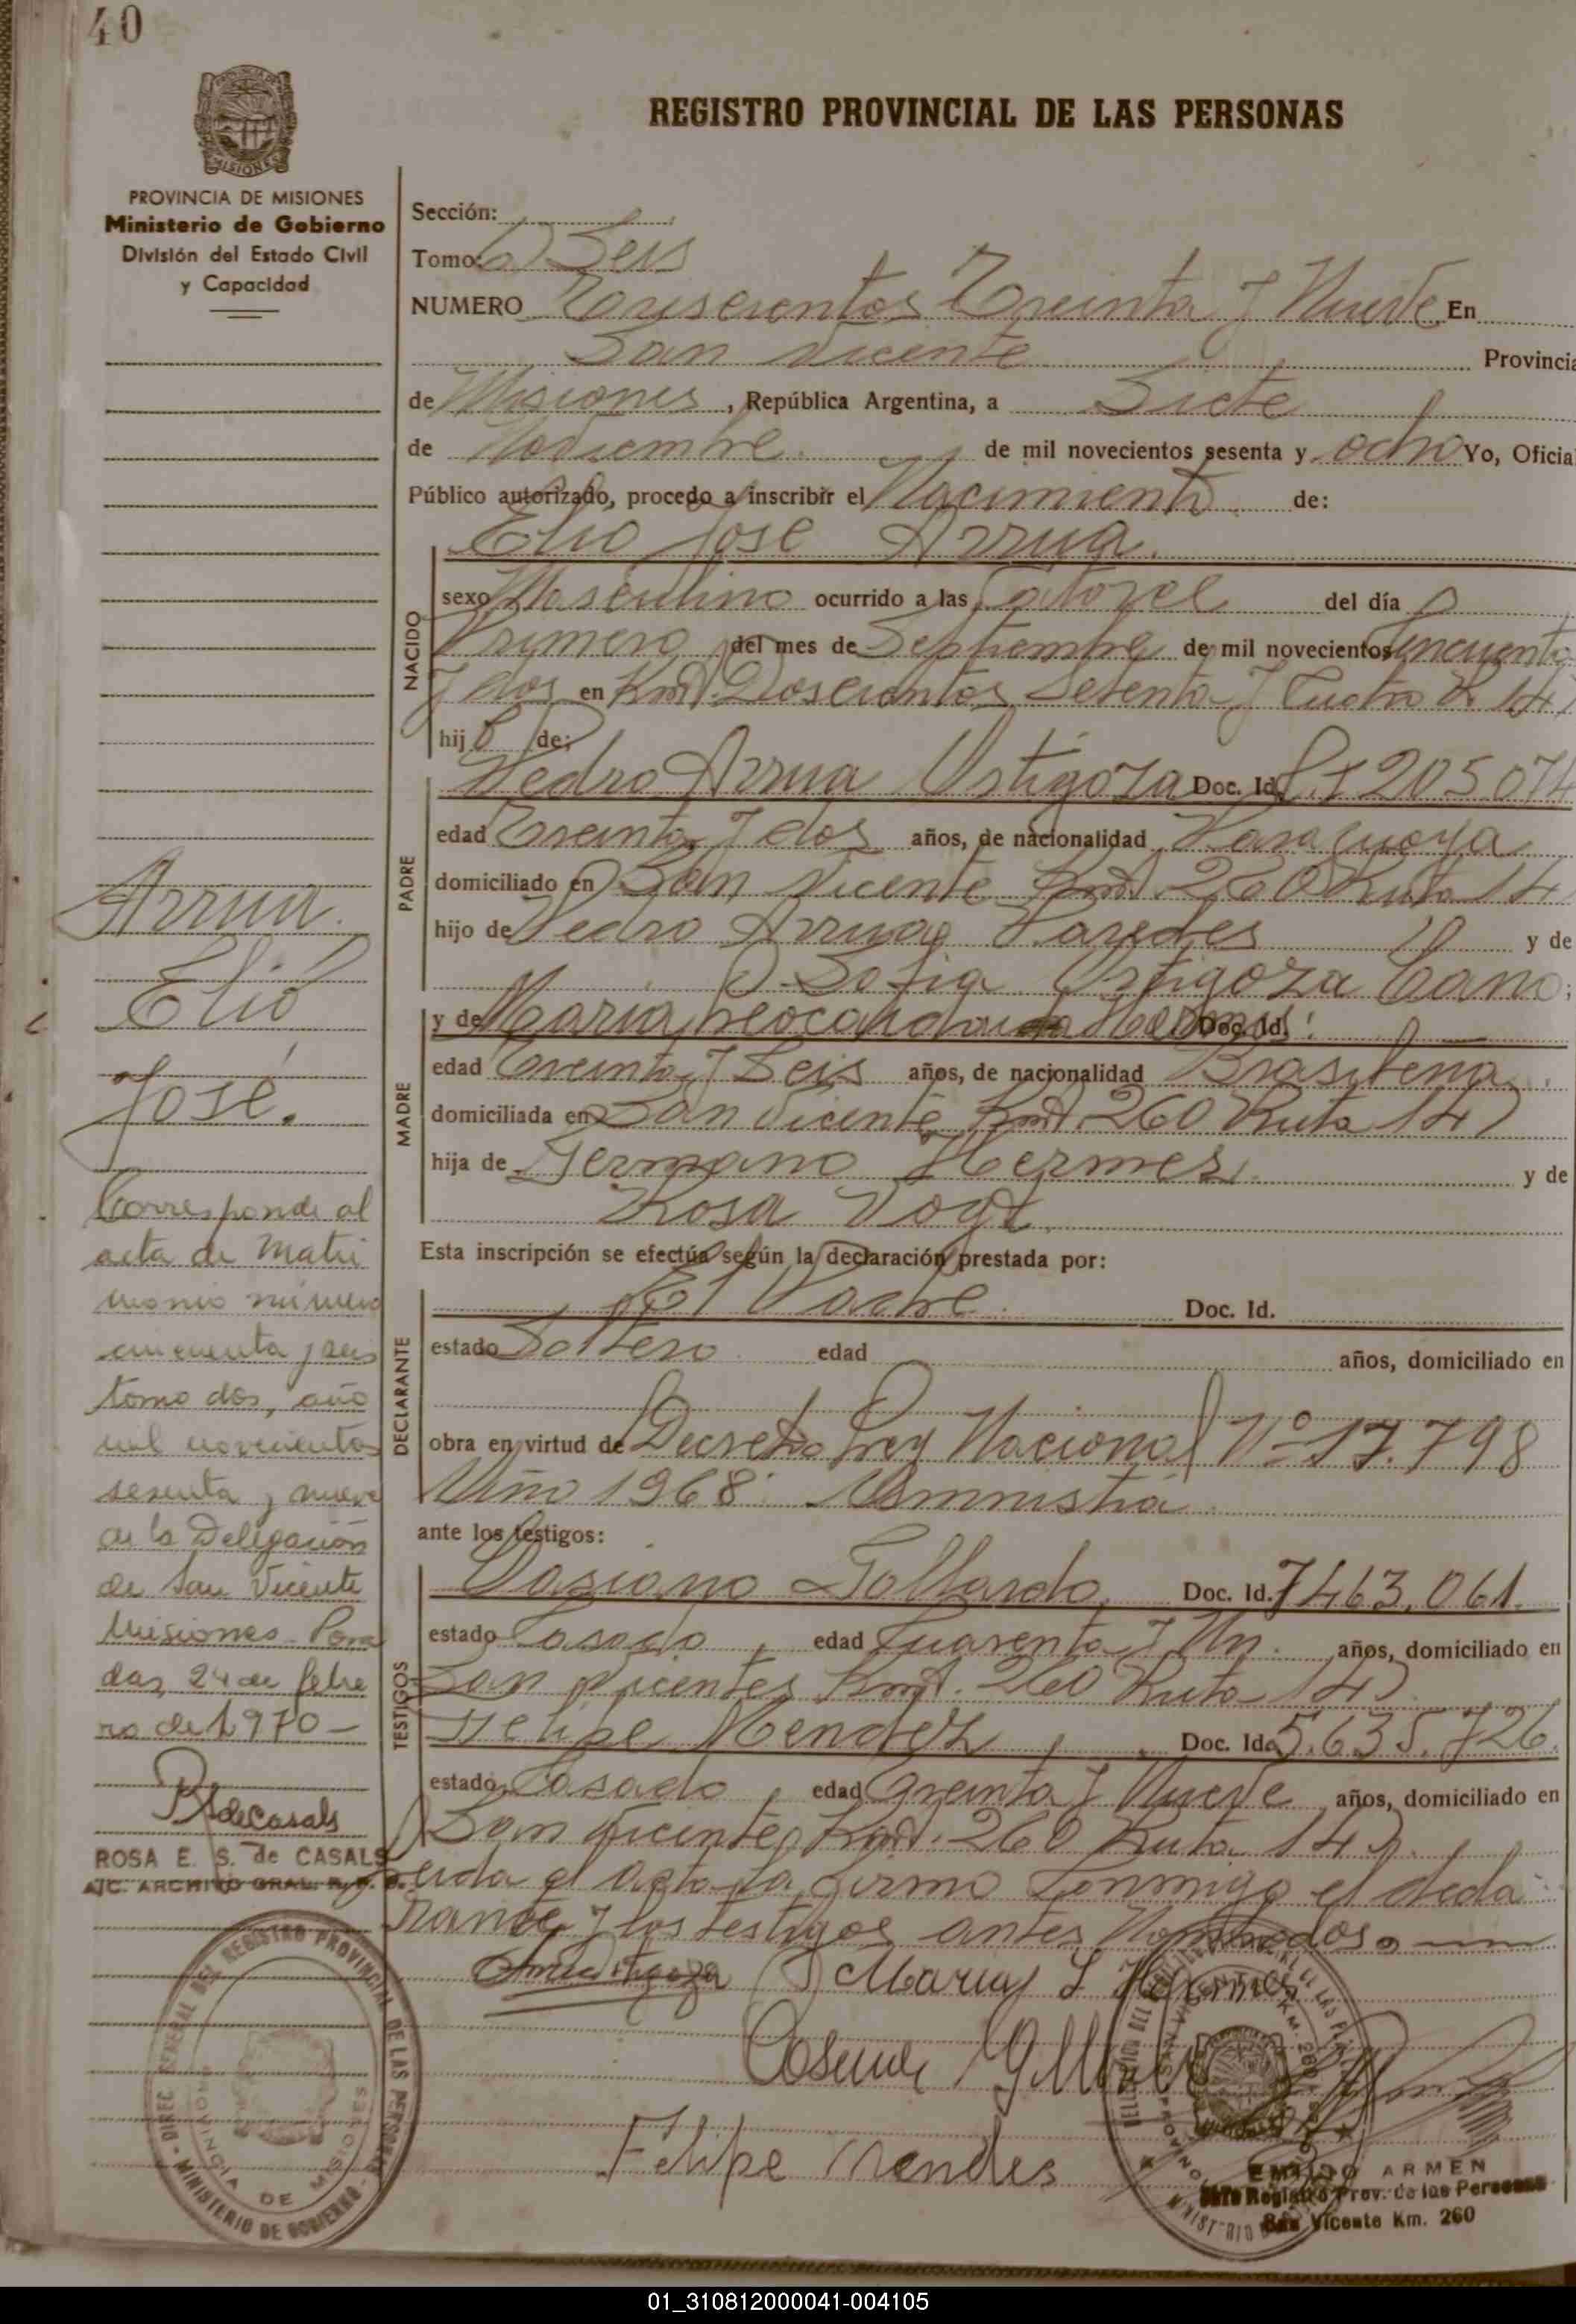 40
PROVINCIA DE MISIONES
Ministerio de Gobierno
División del Estado Civil
y Capacidad
REGISTRO PROVINCIAL DE LAS PERSONAS
Sección:
Tomo: Seis
NUMERO Trescientos Treinta y Nueve En
San Vicente Provincia
de Misiones, República Argentina, a Siete
de Noviembre de mil novecientos sesenta y ocho Yo, Oficial
Público autorizado, procedo a inscribir el Nacimiento de:
Elio José Arrua
NACIDO
sexo Masculino ocurrido a las Catorce del día
Primero del mes de Septiembre de mil novecientos Cincuenta
y dos en Kmt. Doscientos Setenta y Cuatro R 14
hijo de:
PADRE
Pedro Arrua Ortigoza Doc. Id. 1205074
edad Treinta y dos años, de nacionalidad Paraguaya
domiciliado en San Vicente Kmt. 260 Ruta 14
hijo de Pedro Arrua Paredes y de
Sofia Ortigoza Cano;
MADRE
y de Maria Hermes Doc. Id.
edad Treinta y Seis años, de nacionalidad Brasileña
domiciliada en San Vicente Kmt. 260 Ruta 14
hija de Germano Hermes y de
Rosa Vogt
Esta inscripción se efectúa según la declaración prestada por:
DECLARANTE
El Padre Doc. Id.
estado Soltero edad años, domiciliado en
obra en virtud de Decreto Ley Nacional Nº 17.798
Año 1968 Amnistia
ante los testigos:
TESTIGOS
Gallardo Doc. Id. 7463.061
estado Casado, edad Cuarenta y Un años, domiciliado en
San Vicente Kmt. 260 Ruta 14
Felipe Mendez, Doc. Id. 5.635.726
estado Casado, edad Treinta y Nueve años, domiciliado en
San Vicente, Kmt. 260 Ruta 14
Leida el acta la firma Conmigo el decla
rante y los testigos antes Nombrados.
Maria L Hermes
Felipe Mendes
EMILIO ARMEN
Registro Prov. de las Personas
San Vicente Km. 260
Arrua
Elio
José.
Corresponde al
acta de Matri
monio número
cincuenta y seis
tomo dos, año
mil novecientos
sesenta y nueve
de la Delegación
de San Vicente
Misiones - Posa
das, 24 de febre
ro de 1970 -
RdeCasals
ROSA E. S. de CASALS
A/C. ARCHIVO GRAL. R. P. P.
DIREC. GENERAL DEL REGISTRO PROVINCIAL DE LAS PERSONAS
PROVINCIA DE MISIONES
MINISTERIO DE GOBIERNO
01_310812000041-004105